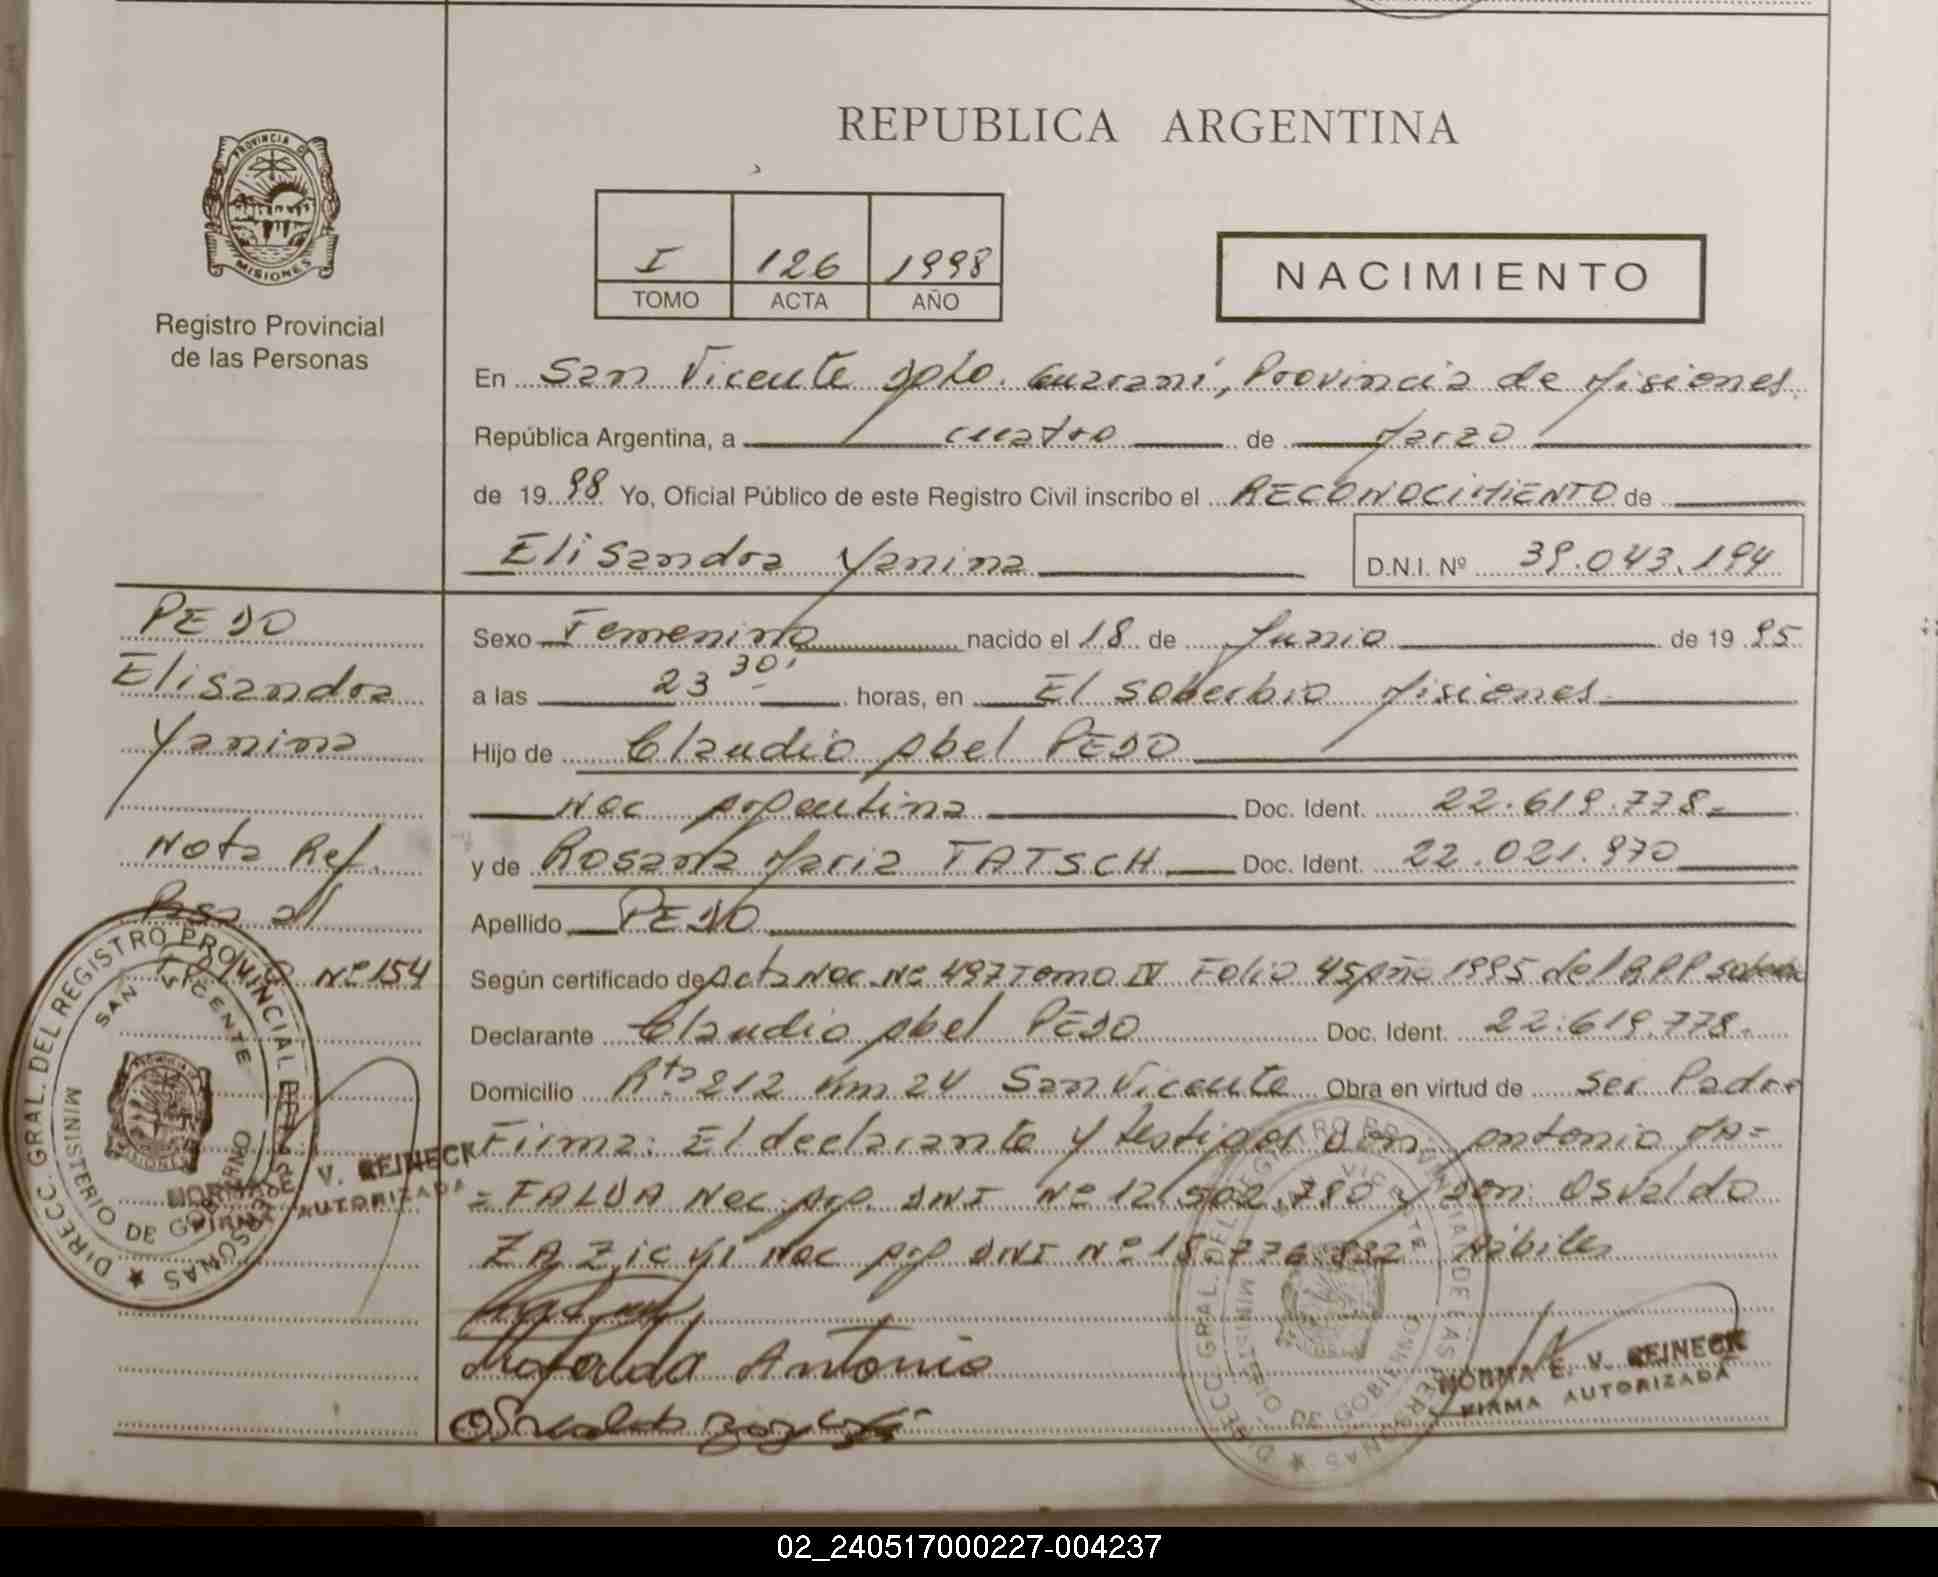 REPUBLICA ARGENTINA
PROVINCIA DE
MISIONES
Registro Provincial
de las Personas
I 126 1998
TOMO ACTA AÑO
NACIMIENTO
En San Vicente Dpto. Guaraní, Provincia de Misiones
República Argentina, a cuatro de Marzo
de 19 98 Yo, Oficial Público de este Registro Civil inscribo el RECONOCIMIENTO de
Elisandra Yanina D.N.I. Nº 39.043.194
PEDO
Elisandra
Yanina
Nota Ref.
Pasa al
Nº 154
Sexo Femenino nacido el 18 de Junio de 19 95
a las 23 30' horas, en El Soberbio Misiones
Hijo de Claudio Abel PEDO
Nac Argentina Doc. Ident. 22.619.778-
y de Rosana Maria TATSCH Doc. Ident. 22.021.970
Apellido PEDO
Según certificado de Acta Nac. Nº 497 Tomo IV Folio 45 Año 1995 del R.P.P
Declarante Claudio Abel PEDO Doc. Ident. 22.619.778-
Domicilio Rta 212 Km 24 San Vicente Obra en virtud de Ser Padre
Firma: El declarante y testigos Don Antonio MA=
=FALDA Nac. Arg. DNI Nº 12.502.780 y Don Osvaldo
Nac Arg DNI Nº Hábiles
Mafalda Antonio
Osvaldo
DIRECC. GRAL. DEL REGISTRO PROVINCIAL DE LAS PERSONAS
MINISTERIO DE GOBIERNO
SAN VICENTE
NORMA E. V. REINECK
FIRMA AUTORIZADA
DIRECC. GRAL. DEL REGISTRO PROVINCIAL DE LAS PERSONAS
MINISTERIO DE GOBIERNO
SAN VICENTE
NORMA E. V. REINECK
FIRMA AUTORIZADA
02_240517000227-004237